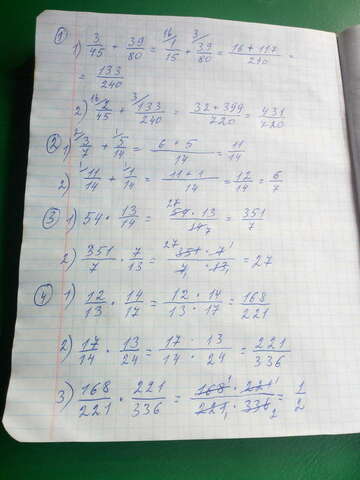 ① 1) 3/45 + 39/80 = 16/ 1/15 + 3/ 39/80 = (16 + 117)/240 =
= 133/240
2) 16/ 2/45 + 3/ 133/240 = (32 + 399)/720 = 431/720
② 1) 2/ 3/7 + 1/ 5/14 = (6 + 5)/14 = 11/14
2) 1/ 11/14 + 1/ 1/14 = (11 + 1)/14 = 12/14 = 6/7
③ 1) 54 · 13/14 = (27 54 · 13)/(14 7) = 351/7
2) 351/7 · 7/13 = (27 351 · 7 1)/(7 1 · 13 1) = 27
④ 1) 12/13 · 14/17 = (12 · 14)/(13 · 17) = 168/221
2) 17/14 · 13/24 = (17 · 13)/(14 · 24) = 221/336
3) 168/221 · 221/336 = (168 1 · 221 1)/(221 1 · 336 2) = 1/2